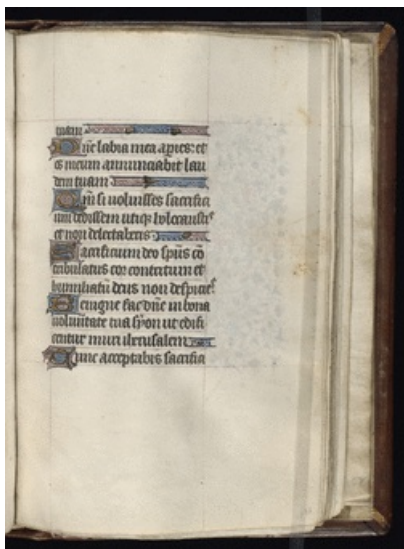 tuam
Dne labia mea apries: et
os meum annunciabit lau
dem tuam
Qm si voluisses sacrifici
um dedissem utiqz holocaustis
et non delectaberis
Sacrificium deo spus con
tribulatus cor contritum et
humiliatum deus non despicies
Benigne fac dne in bona
voluntate tua syon ut edifi
centur muri iherusalem
Tunc acceptabis sacrifici